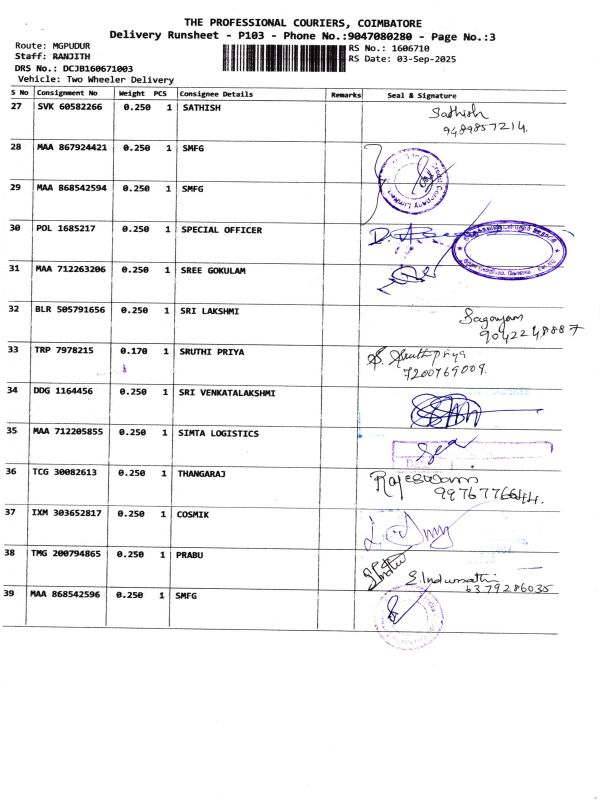 THE PROFESSIONAL COURIERS, COIMBATORE
Delivery Runsheet - P103 - Phone No.:9047080280 - Page No.:3
Route: MGPUDUR
RS No.: 1606710
Staff: RANJITH
RS Date: 03-Sep-2025
DRS No.: DCJB160671003
Vehicle: Two Wheeler Delivery
S No Consignment No Weight PCS Consignee Details Remarks Seal & Signature
27 SVK 60582266 0.250 1 SATHISH Sathish
9489857214.
28 MAA 867924421 0.250 1 SMFG
29 MAA 868542594 0.250 1 SMFG
30 POL 1685217 0.250 1 SPECIAL OFFICER
31 MAA 712263206 0.250 1 SREE GOKULAM
32 BLR 505791656 0.250 1 SRI LAKSHMI
9042248887
33 TRP 7978215 0.170 1 SRUTHI PRIYA S. Sruthi priya
7200769009.
34 DDG 1164456 0.250 1 SRI VENKATALAKSHMI
35 MAA 712205855 0.250 1 SIMTA LOGISTICS
36 TCG 30082613 0.250 1 THANGARAJ Rajeswari
9976776644.
37 IXM 303652817 0.250 1 COSMIK
38 TMG 200794865 0.250 1 PRABU S. Indumathi
6379286035
39 MAA 868542596 0.250 1 SMFG